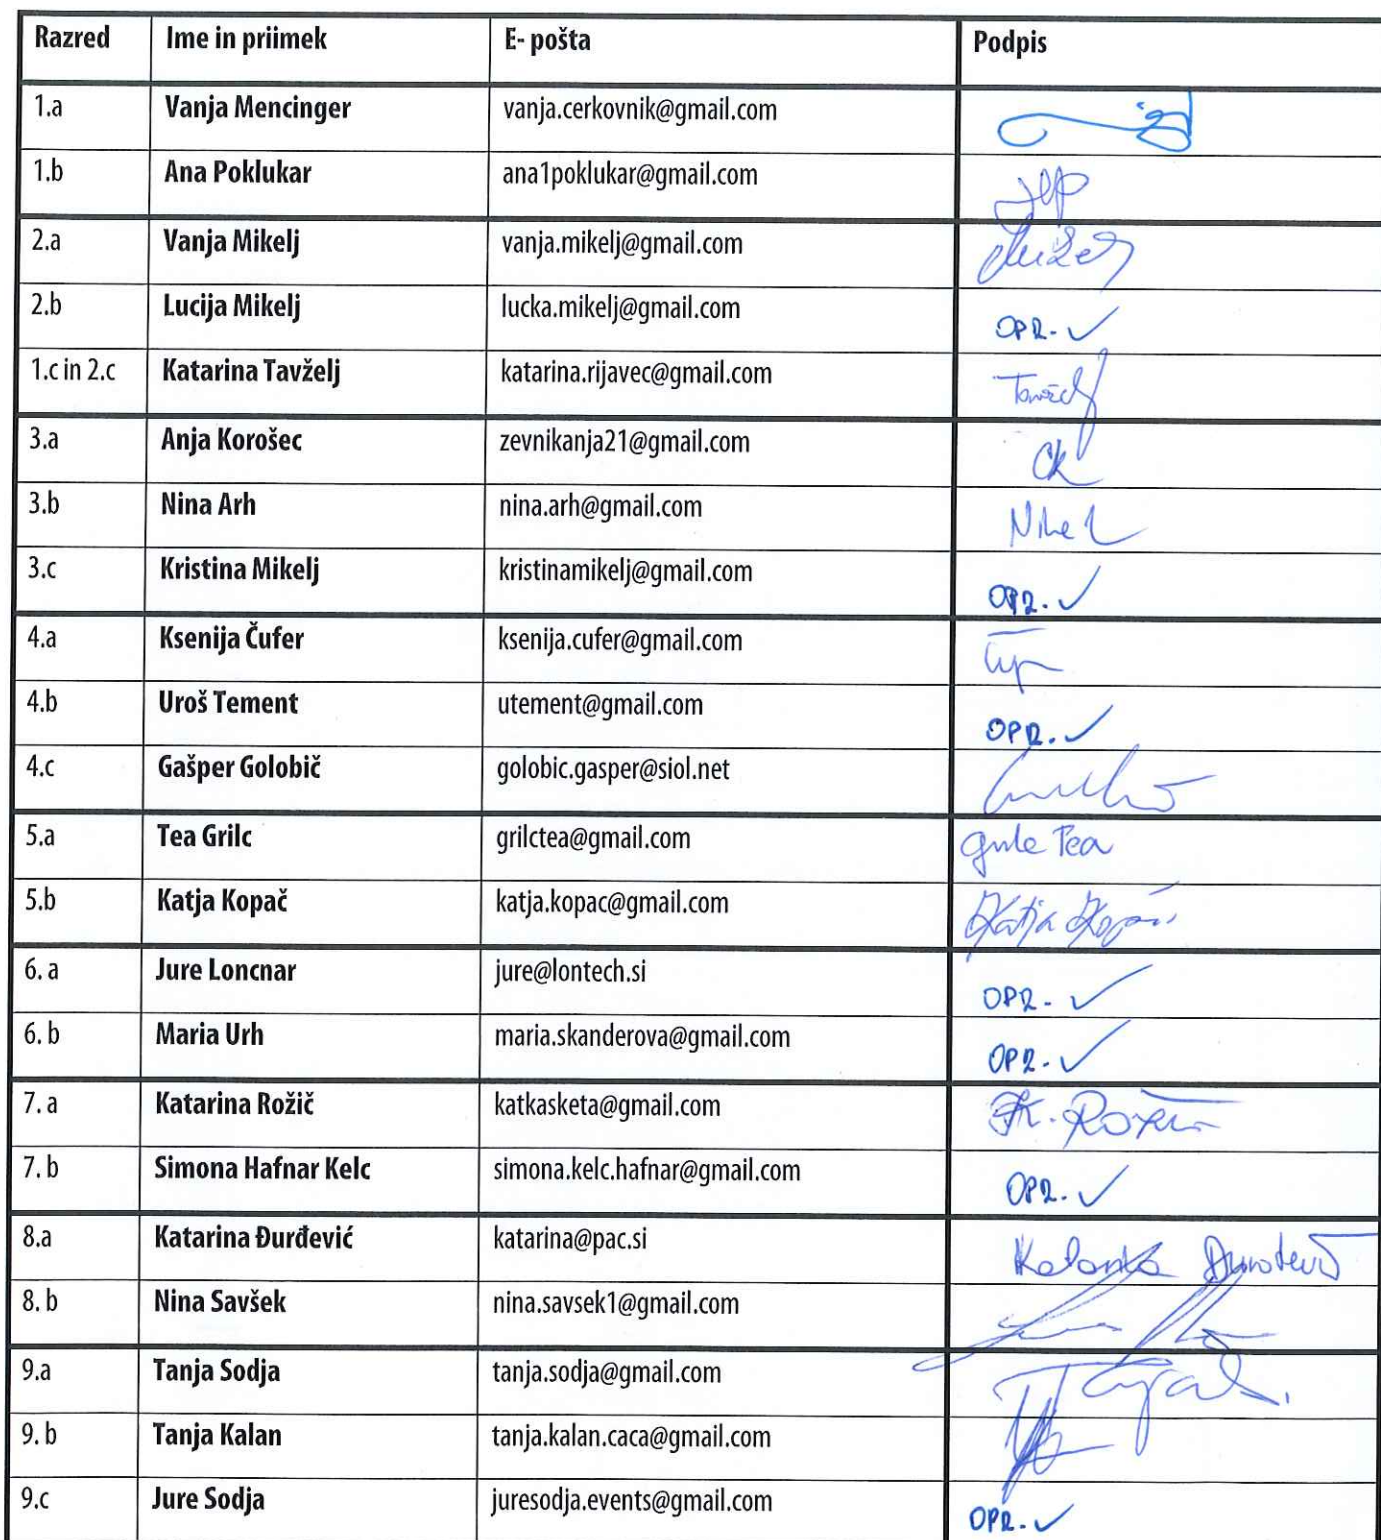 Razred Ime in priimek E- pošta Podpis
1.a Vanja Mencinger vanja.cerkovnik@gmail.com
1.b Ana Poklukar ana1poklukar@gmail.com
2.a Vanja Mikelj vanja.mikelj@gmail.com
2.b Lucija Mikelj lucka.mikelj@gmail.com OPR. ✓
1.c in 2.c Katarina Tavželj katarina.rijavec@gmail.com
3.a Anja Korošec zevnikanja21@gmail.com
3.b Nina Arh nina.arh@gmail.com
3.c Kristina Mikelj kristinamikelj@gmail.com OPR. ✓
4.a Ksenija Čufer ksenija.cufer@gmail.com
4.b Uroš Tement utement@gmail.com OPR. ✓
4.c Gašper Golobič golobic.gasper@siol.net
5.a Tea Grilc grilctea@gmail.com Grilc Tea
5.b Katja Kopač katja.kopac@gmail.com Katja Kopač
6. a Jure Loncnar jure@lontech.si OPR. ✓
6. b Maria Urh maria.skanderova@gmail.com OPR. ✓
7. a Katarina Rožič katkasketa@gmail.com K. Rožič
7. b Simona Hafnar Kelc simona.kelc.hafnar@gmail.com OPR. ✓
8.a Katarina Đurđević katarina@pac.si
8. b Nina Savšek nina.savsek1@gmail.com
9.a Tanja Sodja tanja.sodja@gmail.com
9. b Tanja Kalan tanja.kalan.caca@gmail.com
9.c Jure Sodja juresodja.events@gmail.com OPR. ✓